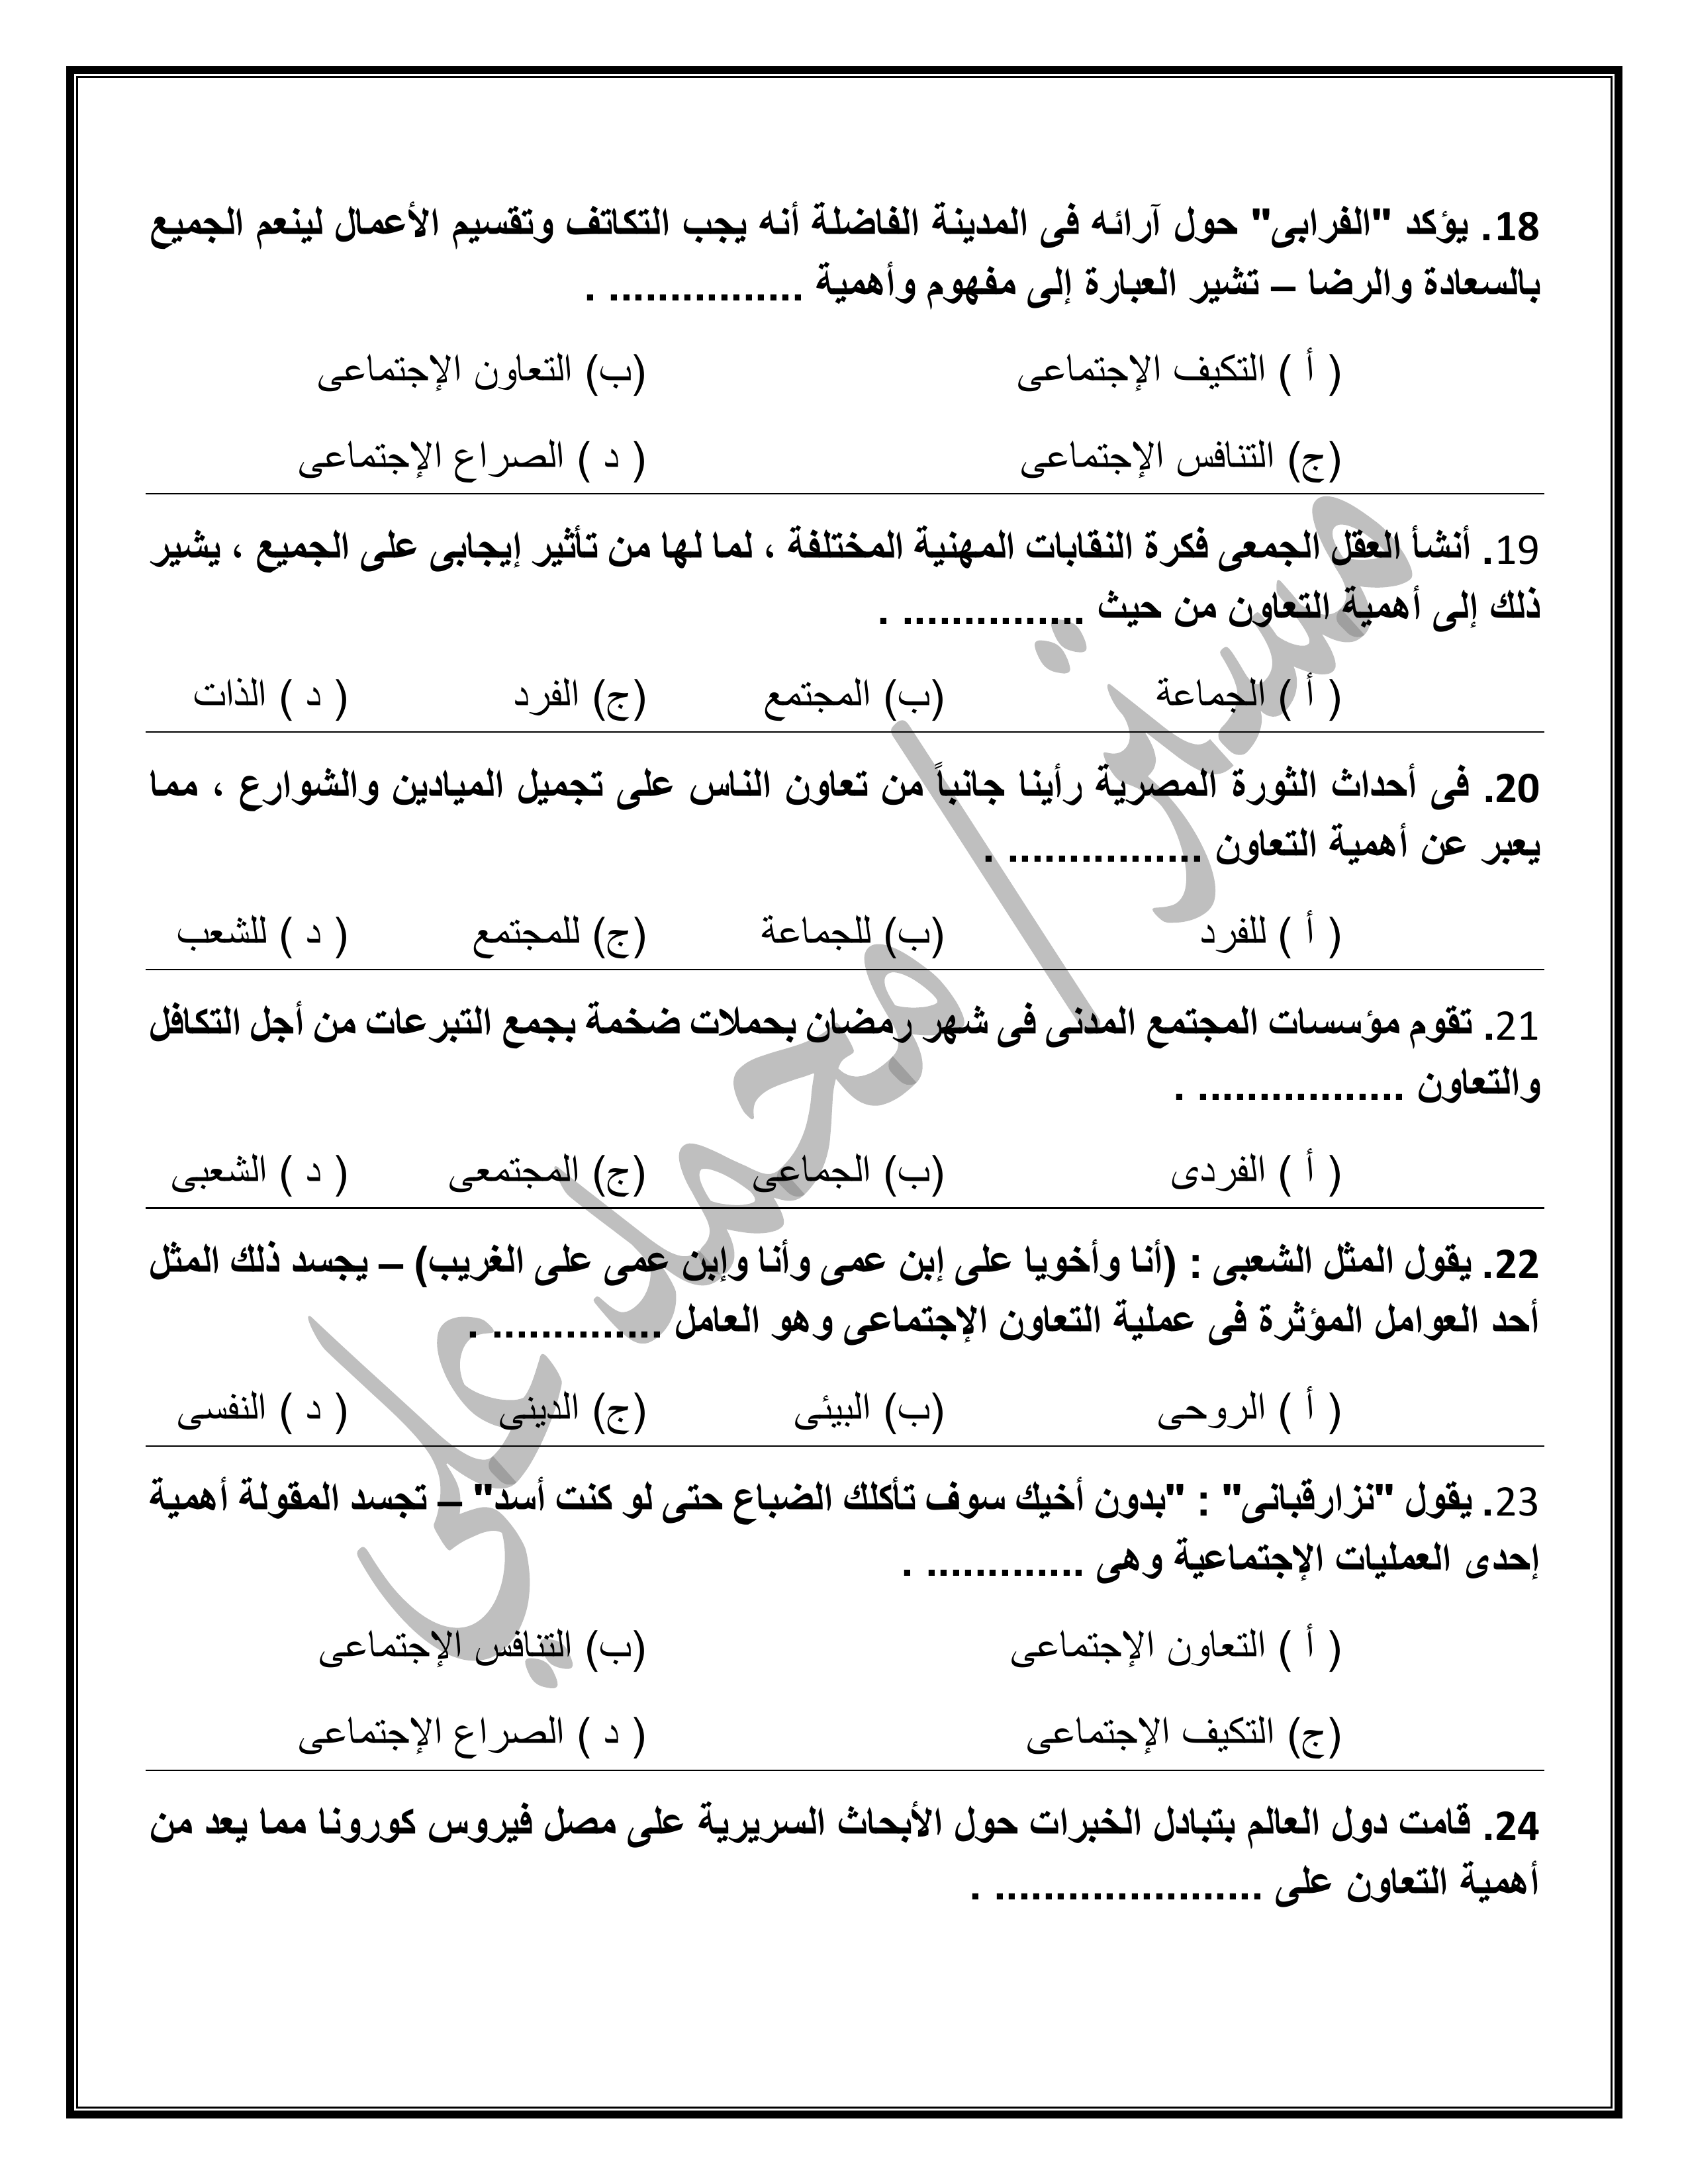 18. يؤكد "الفرابى" حول آرائه فى المدينة الفاضلة أنه يجب التكاتف وتقسيم الأعمال لينعم الجميع
بالسعادة والرضا – تشير العبارة إلى مفهوم وأهمية ................ .
( أ ) التكيف الإجتماعى (ب) التعاون الإجتماعى
(ج) التنافس الإجتماعى ( د ) الصراع الإجتماعى
19. أنشأ العقل الجمعى فكرة النقابات المهنية المختلفة ، لما لها من تأثير إيجابى على الجميع ، يشير
ذلك إلى أهمية التعاون من حيث ............... .
( أ ) الجماعة (ب) المجتمع (ج) الفرد ( د ) الذات
20. فى أحداث الثورة المصرية رأينا جانباً من تعاون الناس على تجميل الميادين والشوارع ، مما
يعبر عن أهمية التعاون ................ .
( أ ) للفرد (ب) للجماعة (ج) للمجتمع ( د ) للشعب
21. تقوم مؤسسات المجتمع المدنى فى شهر رمضان بحملات ضخمة بجمع التبرعات من أجل التكافل
والتعاون ................. .
( أ ) الفردى (ب) الجماعى (ج) المجتمعى ( د ) الشعبى
22. يقول المثل الشعبى : (أنا وأخويا على إبن عمى وأنا وإبن عمى على الغريب) – يجسد ذلك المثل
أحد العوامل المؤثرة فى عملية التعاون الإجتماعى وهو العامل .............. .
( أ ) الروحى (ب) البيئى (ج) الدينى ( د ) النفسى
23. يقول "نزارقبانى" : "بدون أخيك سوف تأكلك الضباع حتى لو كنت أسد" – تجسد المقولة أهمية
إحدى العمليات الإجتماعية وهى ............. .
( أ ) التعاون الإجتماعى (ب) التنافس الإجتماعى
(ج) التكيف الإجتماعى ( د ) الصراع الإجتماعى
24. قامت دول العالم بتبادل الخبرات حول الأبحاث السريرية على مصل فيروس كورونا مما يعد من
أهمية التعاون على ...................... .
مستر/ محمد علي